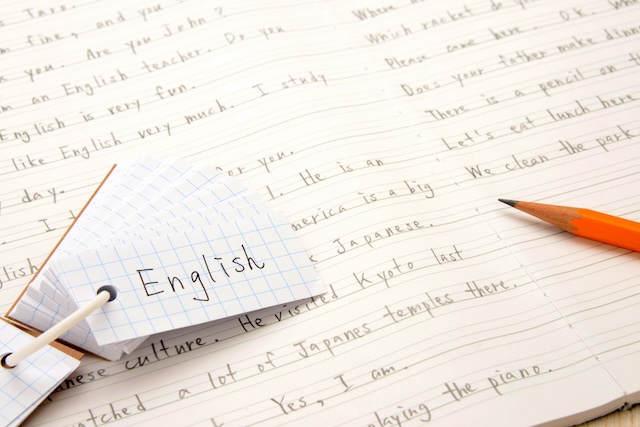 Taro.
fine, and you
you. Are you John?
an English teacher. Do you
English is very fun.
like English very much. I study
day. for you.
I He is an
merica is a big
Japanese.
nese culture. He visited Kyoto last
a lot of Japanes temples there.
Yes, I am.
playing the piano.
English
Where
Which racket do
Please came here. O.k.
Does your father make
There is a pencil on
Let's eat lunch here
We clean the park